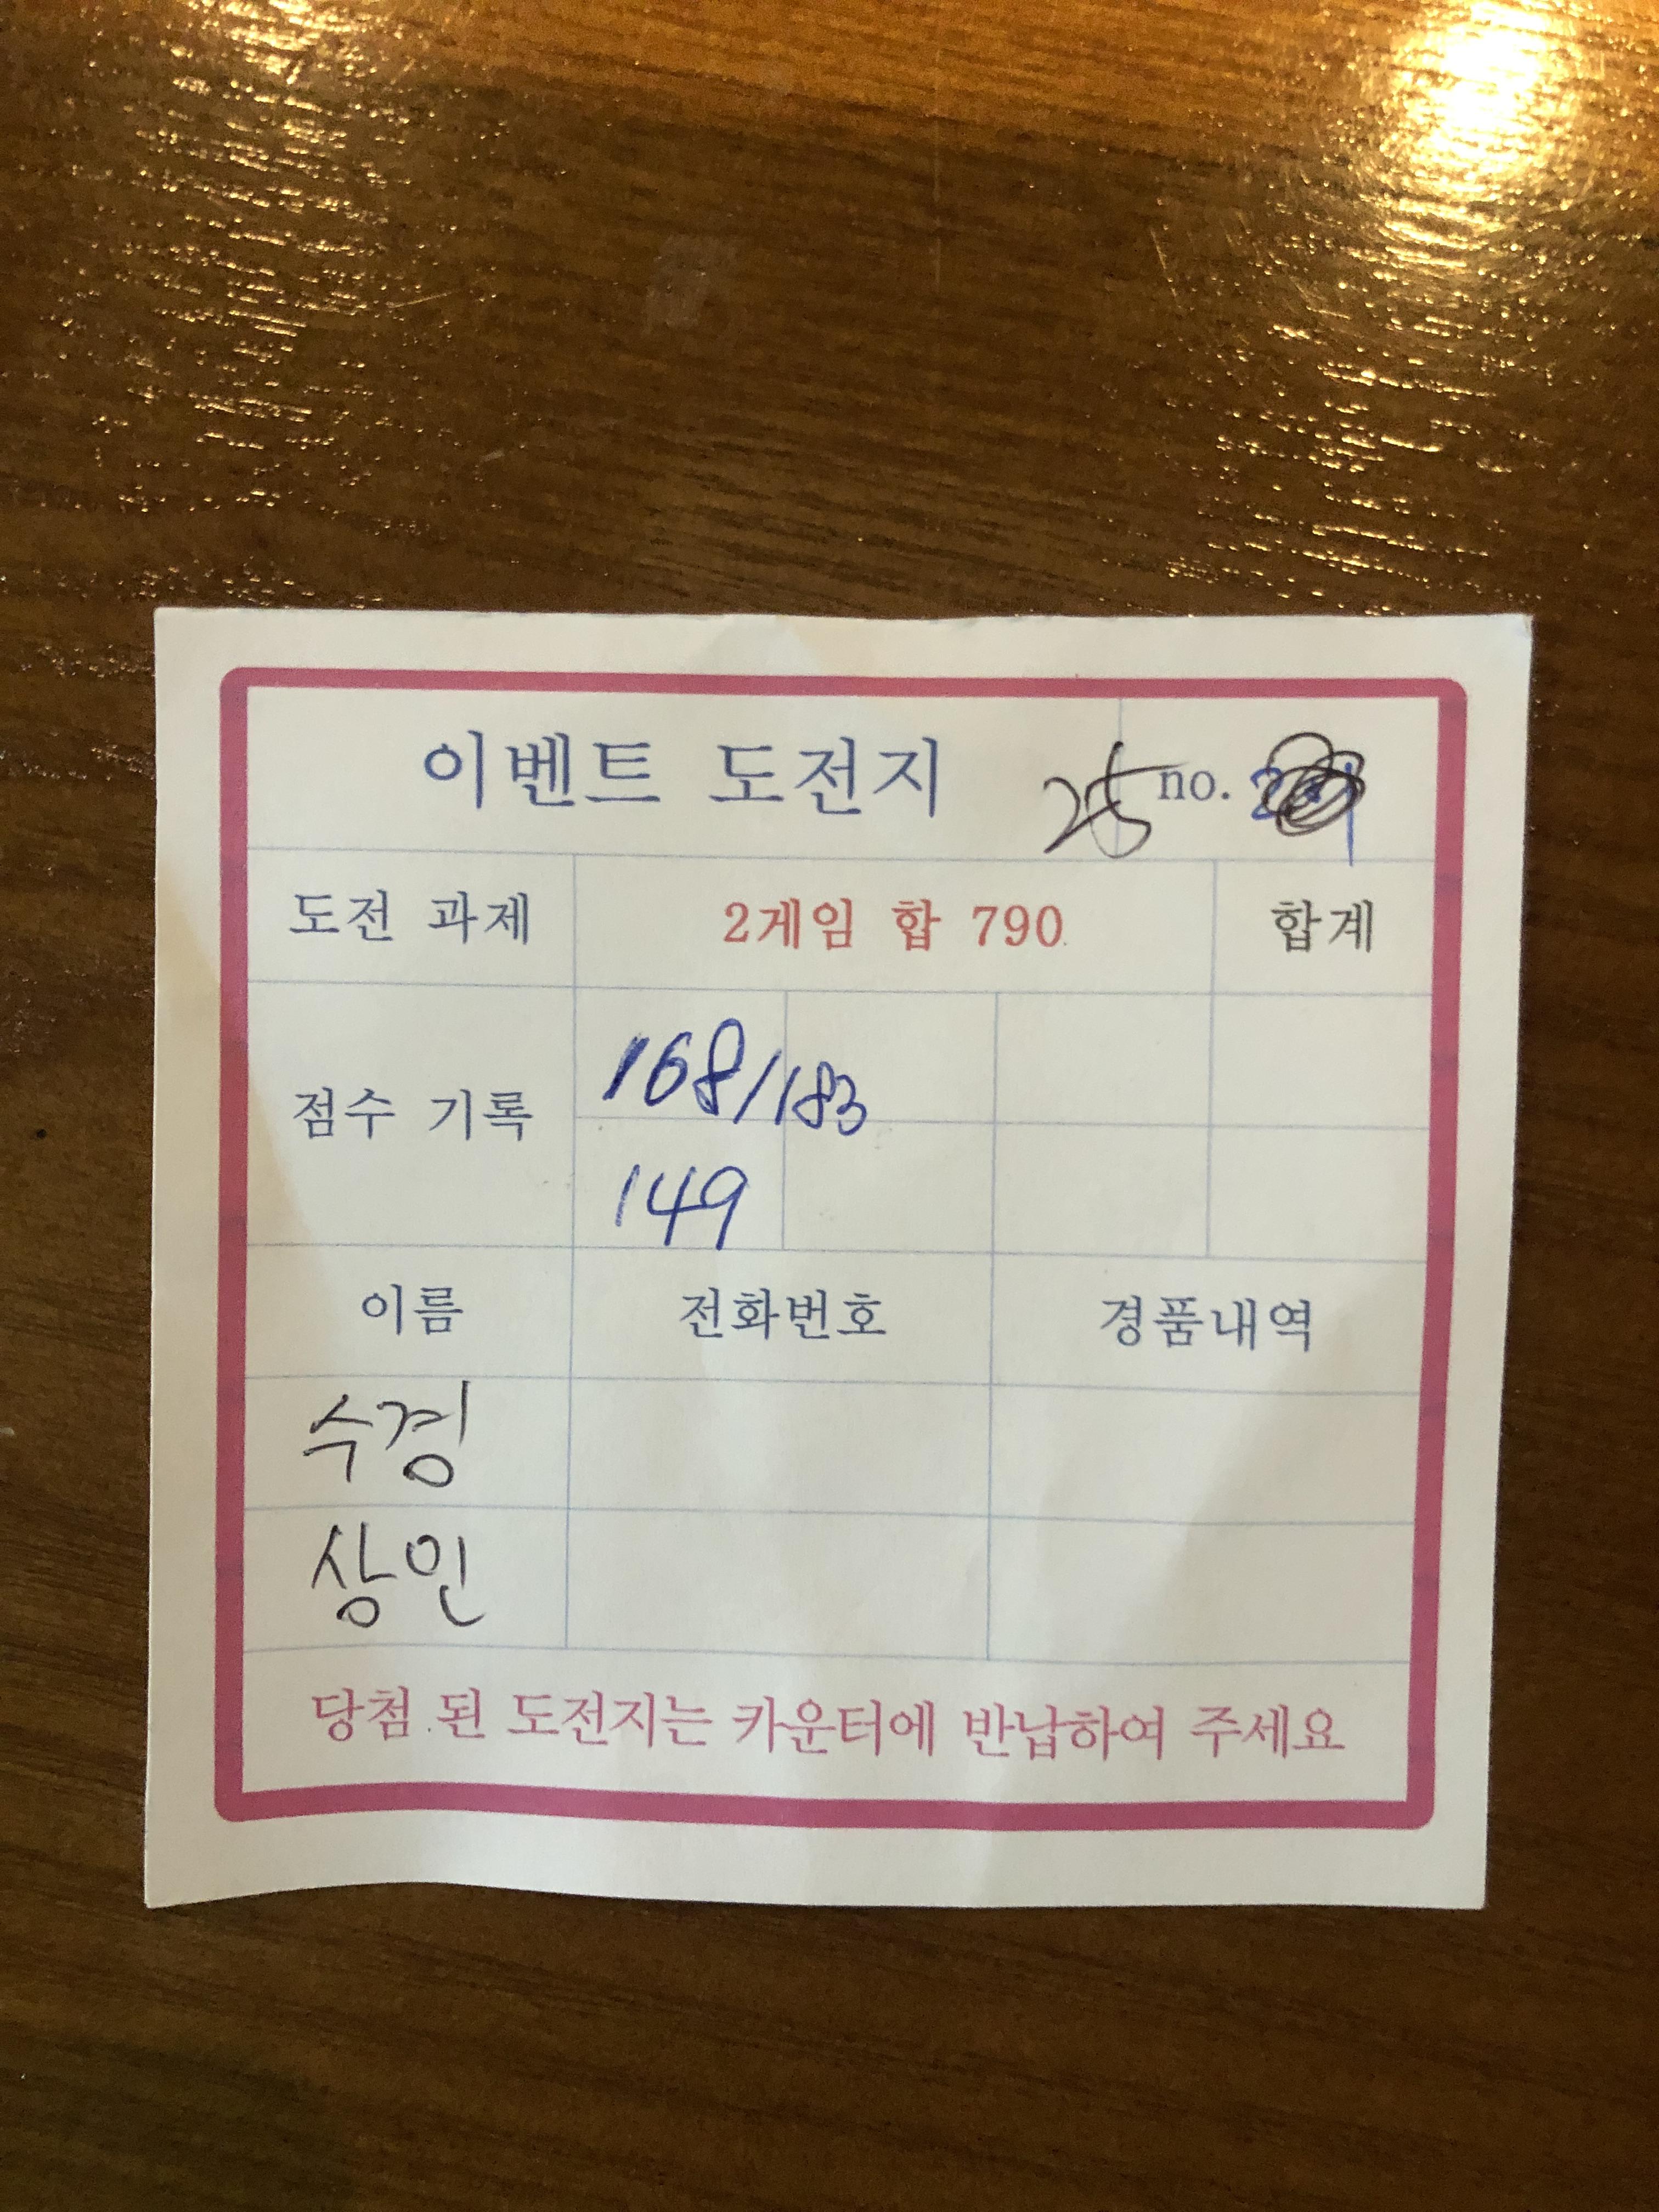 이벤트 도전지 25 no.
도전 과제 2게임 합 790 합계
점수 기록
168/183
149
이름 전화번호 경품내역
수경
상인
당첨 된 도전지는 카운터에 반납하여 주세요